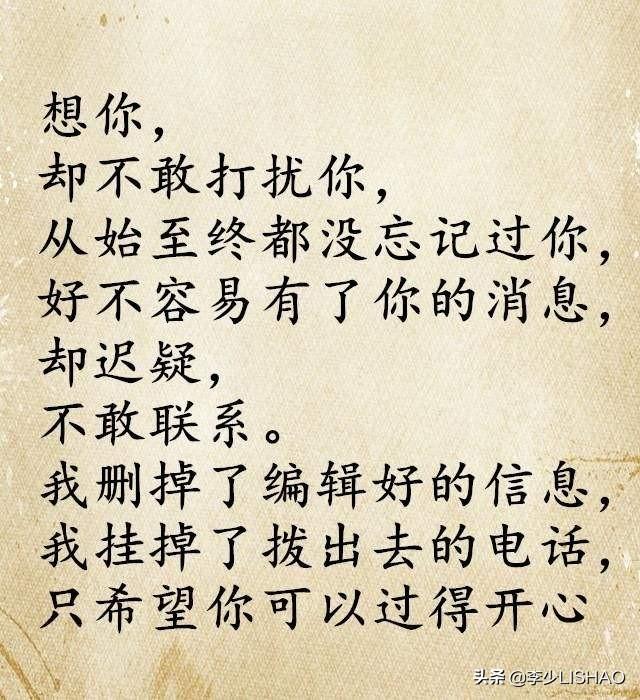 想你，
却不敢打扰你，
从始至终都没忘记过你，
好不容易有了你的消息，
却迟疑，
不敢联系。
我删掉了编辑好的信息，
我挂掉了拨出去的电话，
只希望你可以过得开心
头条 @李少LISHAO